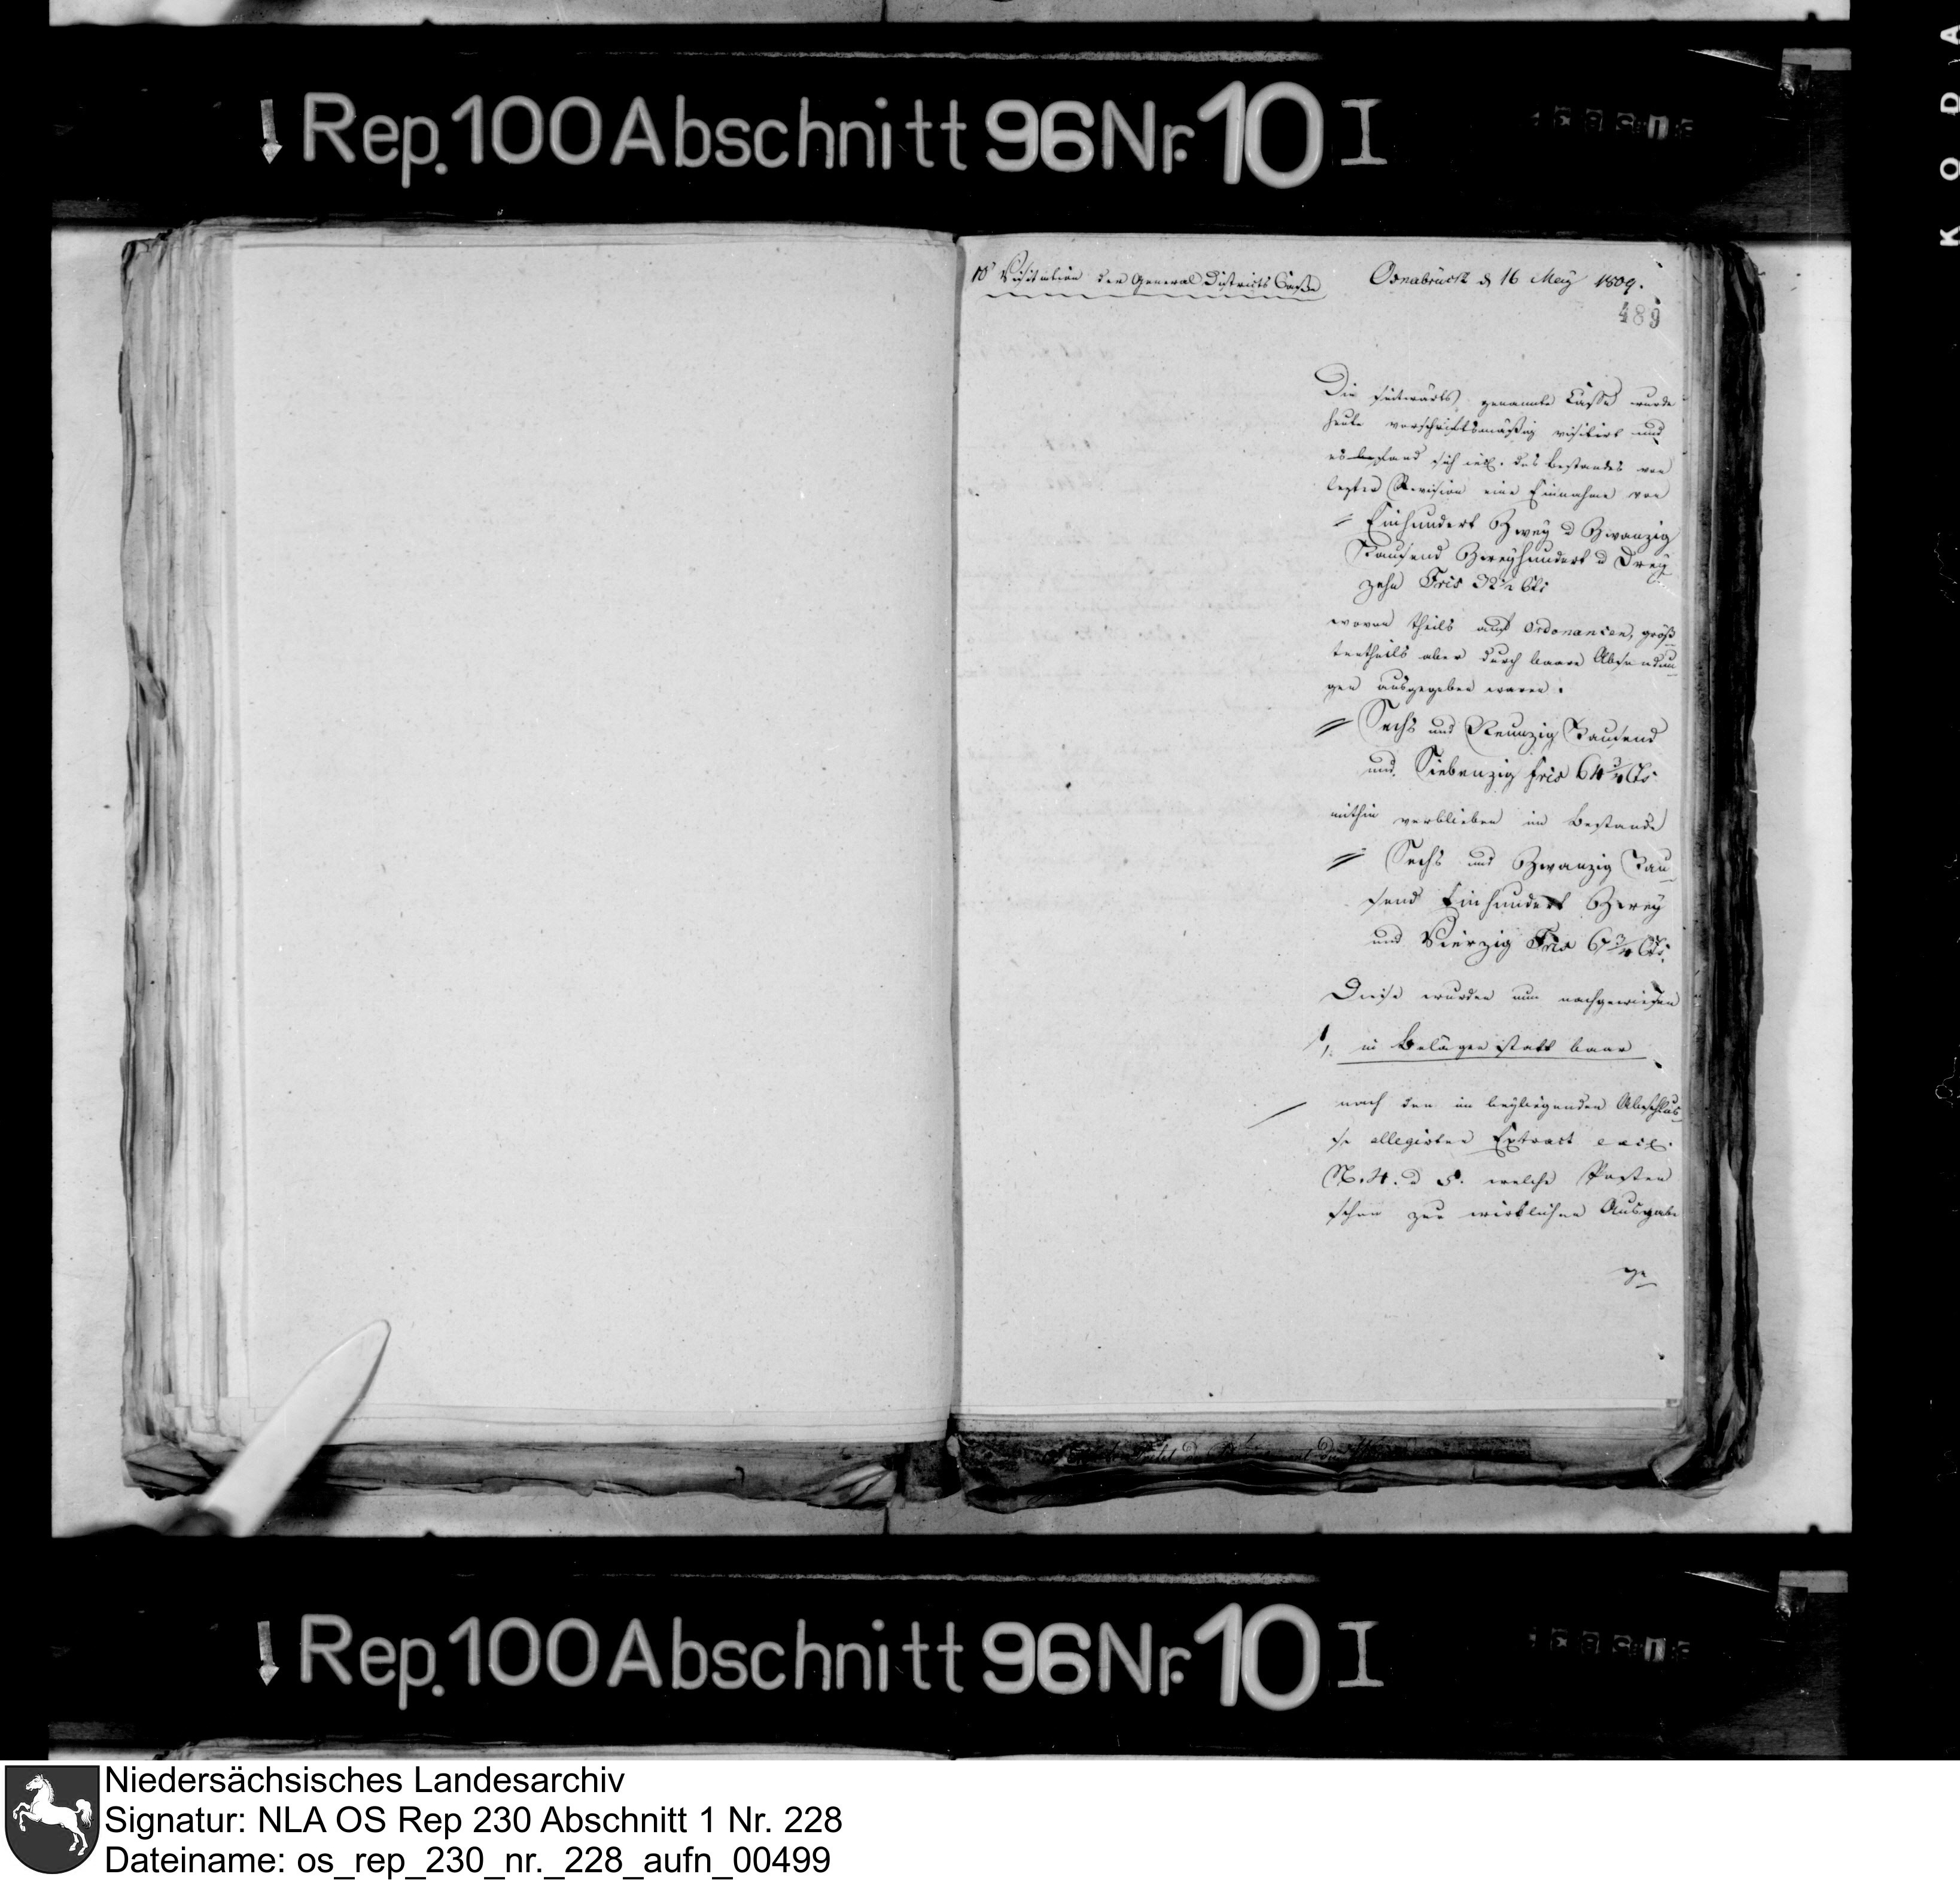 Rep. 100 Abschnitt 96 Nr. 10 I
KODA
10 Visitation der General Districts Casse
Osnabrück d 16 Mey 1809.
489
Die seitwärts genannte Casse wurde
heute vorschriftsmäßig visitirt und
es befand sich incl. des Bestandes von
letzter Revision eine Einnahme von
= Einhundert Zwey & Zwanzig
Tausend Zweyhundert & Drey
zehn Frcs
wovon theils auf Ordonancen, größ
tentheils aber durch baare Absendun
gen ausgegeben waren.
= Sechs und Neunzig Tausend
und Siebenzig frcs 64 3/4 Cts.
mithin verblieben im Bestande
= Sechs und Zwanzig Tau
send Einhundert Zwey
und Vierzig Frcs 67 3/4 Cts.
Diese wurden nun nachgewiesen
1, in Belägen statt baar
nach den im beyliegenden Abschlus
se allegirten Extract excl.
N. 4. & 5. welche Posten
schon zur wirklichen Ausgabe
Rep. 100 Abschnitt 96 Nr. 10 I
Niedersächsisches Landesarchiv
Signatur: NLA OS Rep 230 Abschnitt 1 Nr. 228
Dateiname: os_rep_230_nr._228_aufn_00499